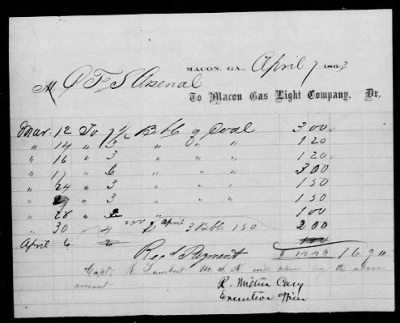 MACON, GA., April 7, 1863
M. C F S Arsenal
To Macon Gas Light Company, Dr.
Mar. 12 To 7½ Bbl of Coal 3 00
" 14 " 3 " " " 1 20
" 16 " 3 " " 1 20
" 17 " 6 " " " 3 00
" 24 " 3 " " 1 50
" " 3 " " " 1 50
" 28 " 2 " " 1 00
" 30 " 4 " 2 April 3 Bbl 1 50 2 00
April 6 " 2 1 00
Recd Payment $ 14.40 16 90
Capt. Lambert M. S. A. will please pay the above
account R. Milton Cary
Executive officer